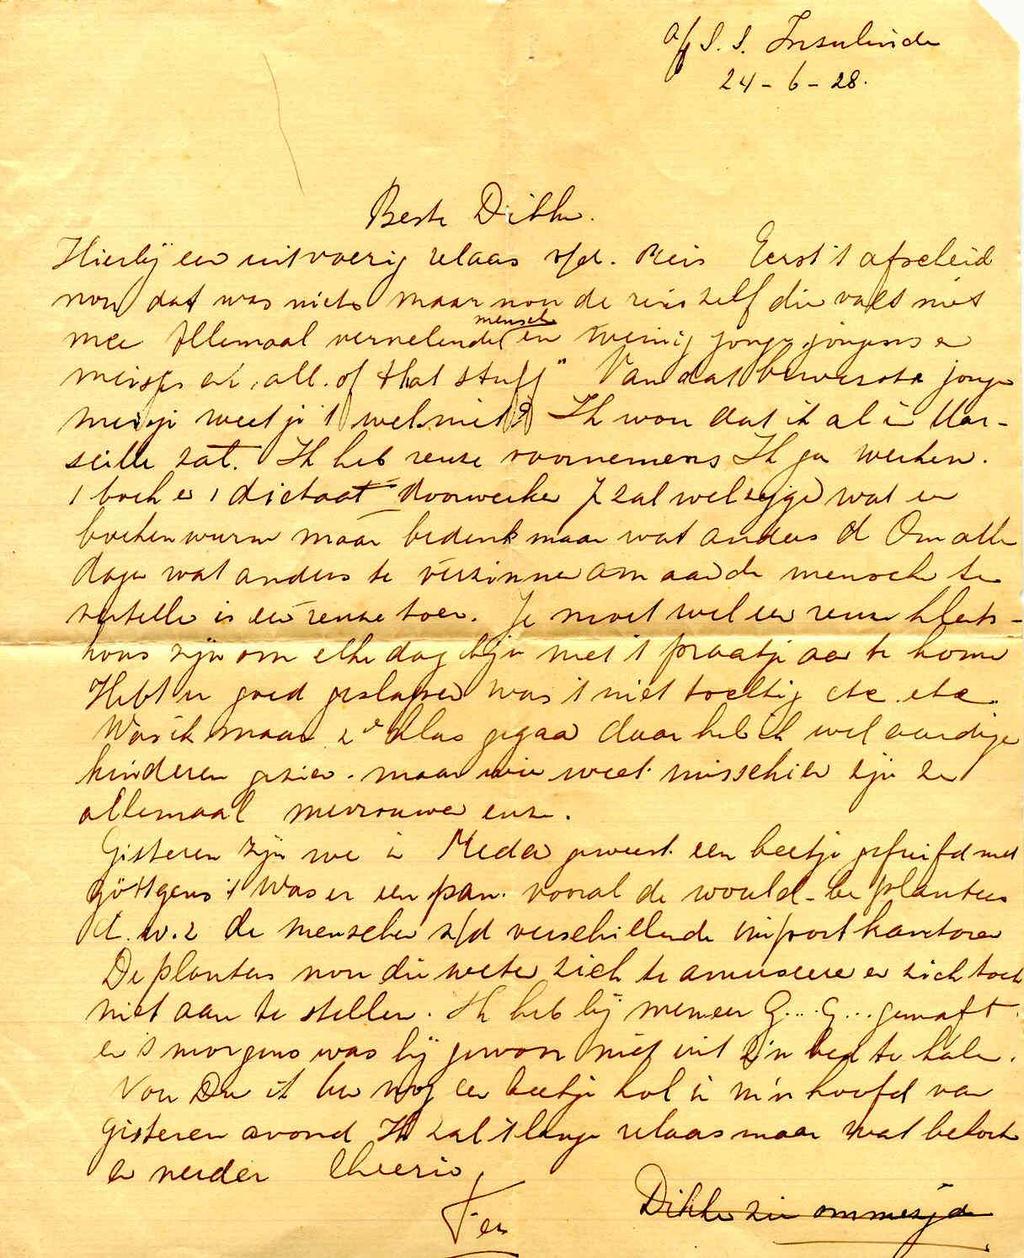 a/b S.S. Insulinde
24-6-28.
Beste Dikke.
Hierbij een uitvoerig relaas v/d. Reis Eerst 't afscheid
nou dat was niets maar nou de reis zelf die valt niet
mee Allemaal vervelende menschen weinig jonge jongens en
meisjes en "all. of that stuff" Van dat bewuste jonge
meisje weet je 't wel niet? Ik wou dat ik al in Mar-
seille zat. Ik heb reuze voornemens Ik ga werken.
1 boek en 1 dictaat doorwerken Je zal wel zeggen wat een
boekenwurm maar bedenk maar wat anders Om alle
dagen wat anders te verzinnen om aan de menschen te
vertellen is een reuze toer. Je moet wel een reuze klets-
kous zijn om elke dag bij je met 't praatje aan te komen
Hebt u goed geslapen was 't niet tochtig etc. etc.
Was ik maar 2e klas gegaan daar heb ik wel aardige
kinderen gezien. maar wie weet misschien zijn ze
allemaal mevrouwen enz.
Gisteren zijn we in Medan geweest een beetje gefuifd met
Göttgens 't Was er een pan. vooral de would-be planters
d.w.z de menschen v/d verschillende importkantoren
De planters nou die weten zich te amuseeren en zich toch
niet aan te stellen. Ik heb bij meneer G... G... gemaft
en 's morgens was hij gewoon niet uit z'n bed te halen.
Nou Du ik ben nog een beetje hol in m'n hoofd van
gisteren avond Ik zal 't lange relaas maar wat bekorten
en verder Cheerio
Fer
Dikke zie ommezijde